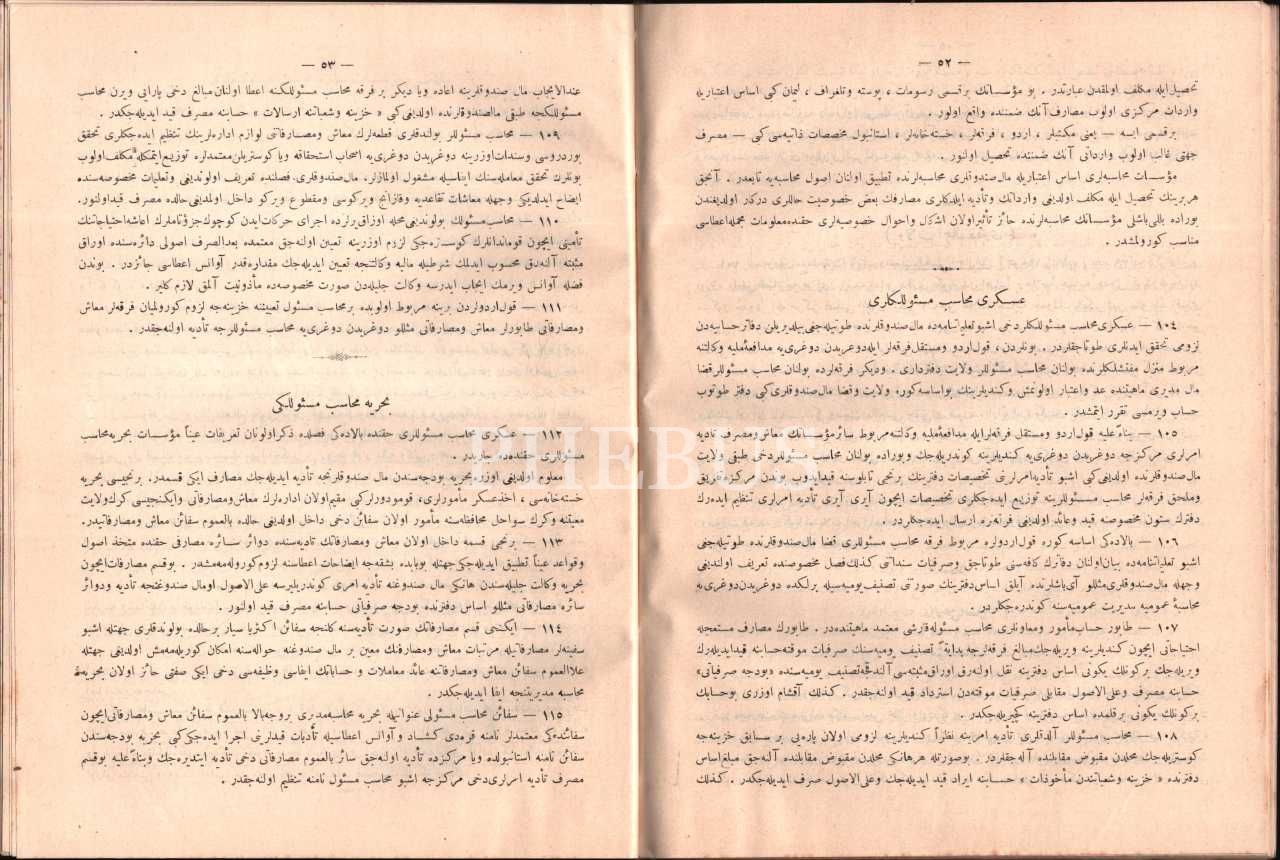 — ٥٢ —
تحصیل ایله مکلف اولمقدن عبارتدر . بو مؤسساتك برقسمی رسومات ، پوسته وتلغراف ، لیمان کبی اساس اعتباریله
واردات مرکزی اولوب مصارف آنك ضمننده واقع اولور .
برقسمی ایسه — یعنی مکتبلر ، اردو ، فرقه‌لر ، خسته‌خانه‌لر ، استانبول مخصصات ذاتیه‌سی کبی — مصرف
جهتی غالب اولوب وارداتی آنك ضمننده تحصیل اولنور .
مؤسسات محاسبه‌لری اساس اعتباریله مال صندوقلری محاسبه‌لرنده تطبیق اولنان اصول محاسبه‌یه تابعدر . آنجق
هربرینك تحصیل ایله مکلف اولدیغی وارداتك وتأدیه ایلدکلری مصارفك بعض خصوصیت حاللری درکار اولدیغندن
بوراده بللی باشلی مؤسساتك محاسبه‌لرنده حائز تأثیر اولان اشکال واحوال خصوصیه‌لری حقنده معلومات مجمله اعطاسی
مناسب کورولمشدر .
عسکری محاسب مسئوللکلری
١٠٤ — عسکری محاسب مسئوللکلر دخی اشبو تعلیماتنامه‌ده مال صندوقلرنده طوتیله‌جغی بیلدیریلن دفاتر حسابیه‌دن
لزومی تحقق ایدنلری طوتاجقلردر . بونلردن ، قول اردو ومستقل فرقه‌لر ایله دوغریدن دوغری‌یه مدافعۀ ملیه وکالتنه
مربوط منزل مفتشلکلرنده بولنان محاسب مسئوللر ولایت دفترداری . ودیکر فرقه‌لرده بولنان محاسب مسئوللر قضا
مال مدیری ماهیتنده عد واعتبار اولونمش وکندیلرینك بو اساسه کوره ولایت وقضا مال صندوقلری کبی دفتر طوتوب
حساب ویرمسی تقرر ایتمشدر .
١٠٥ — بناءً علیه قول اردو ومستقل فرقه‌لر ایله مدافعۀ ملیه وکالتنه مربوط سائر مؤسساتك معاش ومصرف تأدیه
امرلری مرکزجه دوغریدن دوغری‌یه کندیلرینه کوندریله‌جك وبوراده بولنان محاسب مسئوللر دخی طبقی ولایت
مال صندوقلرنده اولدیغی کبی اشبو تأدیه امرلرینی تخصیصات دفترینك برنجی تابلوسنه قید ایدوب بوندن مرکزه تفریق
وملحق فرقه‌لر محاسب مسئوللرینه توزیع ایده‌جکلری تخصیصات ایچون آیری آیری تأدیه امرلری تنظیم ایده‌رك
دفترك ستون مخصوصنه قید وعائد اولدیغی فرقه‌لره ارسال ایده‌جکلردر .
١٠٦ — بالاده‌کی اساسه کوره قول اردولره مربوط فرقه محاسب مسئوللری قضا مال صندوقلرنده طوتیله‌جغی
اشبو تعلیماتنامه‌ده بیان اولنان دفاترك کافه‌سنی طوتاجق وصرفیات سنداتی کذلك فصل مخصوصنده تعریف اولندیغی
وجهله مال صندوقلری مثللو آی باشلرنده آیلق اساس دفترینك صورتنی تصنیف یومیه‌سیله برلکده دوغریدن دوغری‌یه
محاسبۀ عمومیه مدیریت عمومیه‌سنه کوندره‌جکلردر .
١٠٧ — طابور حساب مأمور ومعاونلری محاسب مسئوله قارشی معتمد ماهیتنده‌در . طابورك مصارف مستعجله
احتیاجاتی ایچون کندیلرینه ویریله‌جك مبالغ فرقه‌لرجه بدایةً تصنیف یومیه‌سنك صرفیات موقته حسابنه قید ایدیله‌رك
ویریله‌جك برکونلك یکونی اساس دفترینه نقل اولنه‌رق اوراق مثبته‌سی آلندقجه تصنیف یومیه‌سنده «بودجه صرفیاتی»
حسابنه مصرف وعلی الاصول مقابلی صرفیات موقته‌دن استرداد قید اولنه‌جقدر . کذلك آقشام اوزری بو حسابك
برکونلك یکونی برقلمده اساس دفترینه کچیریله‌جکدر .
١٠٨ — محاسب مسئوللر آلدقلری تأدیه امرینه نظراً کندیلرینه لزومی اولان پاره‌یی بر سابق خزینه‌جه
کوستریله‌جك محلدن مقبوض مقابلنده آله‌جقلردر . بوصورتله هرهانکی محلدن مقبوض مقابلنده آله‌جق مبلغ اساس
دفترنده « خزینه وشعباتندن مأخوذات » حسابنه ایراد قید ایدیله‌جك وعلی الاصول صرف ایدیله‌جکدر . کذلك
— ٥٣ —
عندالایجاب مال صندوقلرینه اعاده ویا دیکر بر فرقه محاسب مسئوللکنه اعطا اولنان مبالغ دخی پارایی ویرن محاسب
مسئوللکجه طبقی مال صندوقلرنده اولدیغی کبی « خزینه وشعباتنه ارسالات » حسابنه مصرف قید ایدیله‌جکدر .
١٠٩ — محاسب مسئوللر بولندقلری قطعه‌لرك معاش ومصارفاتنی لوازم اداره‌لرینك تنظیم ایده‌جکلری تحقق
بوردروسی وسندات اوزرینه دوغریدن دوغری‌یه اصحاب استحقاقه ویا کوستریلن معتمدلره توزیع ایتمکله مکلف اولوب
بونلرك تحقق معامله‌سنك ایفاسیله مشغول اولمازلر. مال صندوقلری فصلنده تعریف اولوندیغی وتعلیمات مخصوصه‌سنده
ایضاح ایدلدیکی وجهله معاشات تقاعدیه وقازانج ویرکوسی ومقطوع ویرکو داخل اولدیغی حالده مصرف قید اولنور.
١١٠ — محاسب مسئولك بولوندیغی محله اوزاق یرلرده اجرای حرکات ایدن کوچوك جزؤتاملرك اعاشه احتیاجاتنك
تأمینی ایچون قوماندانلرك کوستره‌جکی لزوم اوزرینه تعیین اولنه‌جق معتمده بعدالصرف اصولی دائره‌سنده اوراق
مثبته آلنه‌رق محسوب ایدلمك شرطیله مالیه وکالتنجه تعیین ایدیله‌جك مقداره قدر آوانس اعطاسی جائزدر . بوندن
فضله آوانس ویرمك ایجاب ایدرسه وکالت جلیله‌دن صورت مخصوصه‌ده مأذونیت آلمق لازم کلیر .
١١١ — قول اردولردن برینه مربوط اولوبده برمحاسب مسئول تعییننه خزینه‌جه لزوم کورولمیان فرقه‌لر معاش
ومصارفاتی طابورلر معاش ومصارفاتی مثللو دوغریدن دوغری‌یه محاسب مسئوللرجه تأدیه اولنه‌جقدر .
بحریه محاسب مسئوللکی
١١٢ — عسکری محاسب مسئوللری حقنده بالاده‌کی فصلده ذکر اولنان تعریفات عیناً مؤسسات بحریه محاسب
مسئوللری حقنده‌ده جاریدر .
معلوم اولدیغی اوزره بحریه بودجه‌سندن مال صندوقلرنجه تأدیه ایدیله‌جك مصارف ایکی قسمدر. برنجیسی بحریه
خسته‌خانه‌سی ، اخذعسکر مأمورلری، قومودورلرکبی مقیم اولان اداره‌لرك معاش ومصارفاتی وایکنجیسی کرك ولایت
معیتنه وکرك سواحل محافظه‌سنه مأمور اولان سفائن دخی داخل اولدیغی حالده بالعموم سفائن معاش ومصارفاتیدر.
١١٣ — برنجی قسمه داخل اولان معاش ومصارفاتك تادیه‌سنده دوائر سائره مصارفی حقنده متخذ اصول
وقواعد عیناً تطبیق ایدیله‌جکی جهتله بوبابده بشقه‌جه ایضاحات اعطاسنه لزوم کوروله‌مه‌مشدر . بوقسم مصارفات ایچون
بحریه وکالت جلیله‌سندن هانکی مال صندوغنه تأدیه امری کوندریلیرسه علی الاصول اومال صندوغنجه تأدیه ودوائر
سائره مصارفاتی مثللو اساس دفترنده بودجه صرفیاتی حسابنه مصرف قید اولنور .
١١٤ — ایکنجی قسم مصارفاتك صورت تأدیه‌سنه کلنجه سفائن اکثریا سیار برحالده بولوندقلری جهتله اشبو
سفینه‌لر مصارفاتیله مرتبات معاش ومصارفنك معین بر مال صندوغنه حواله‌سنه امکان کوریله‌مه‌مش اولدیغی جهتله
علی العموم سفائن معاش ومصارفاتنه عائد معاملات و حساباتك ایفاسی وظیفه‌سی دخی ایکی صفتی حائز اولان بحریه
محاسبه مدیریتنجه ایفا ایدیله‌جکدر .
١١٥ — سفائن محاسب مسئولی عنوانیله بحریه محاسبه مدیری بروجه بالا بالعموم سفائن معاش ومصارفاتی ایچون
سفائنده‌کی معتمدلر نامنه قره‌دی کشاد و آوانس اعطاسیله تأدیات قیدلرینی اجرا ایده‌جکی کبی بحریه بودجه‌سندن
سفائن نامنه استانبولده ویا مرکزده تأدیه اولنه‌جق سائر بالعموم سفائن مصارفاتی دخی تأدیه ایتدیره‌جك وبناءً علیه بوقسم
مصرف تأدیه امرلری دخی مرکزجه اشبو محاسب مسئول نامنه تنظیم اولنه‌جقدر .
PHEBUS